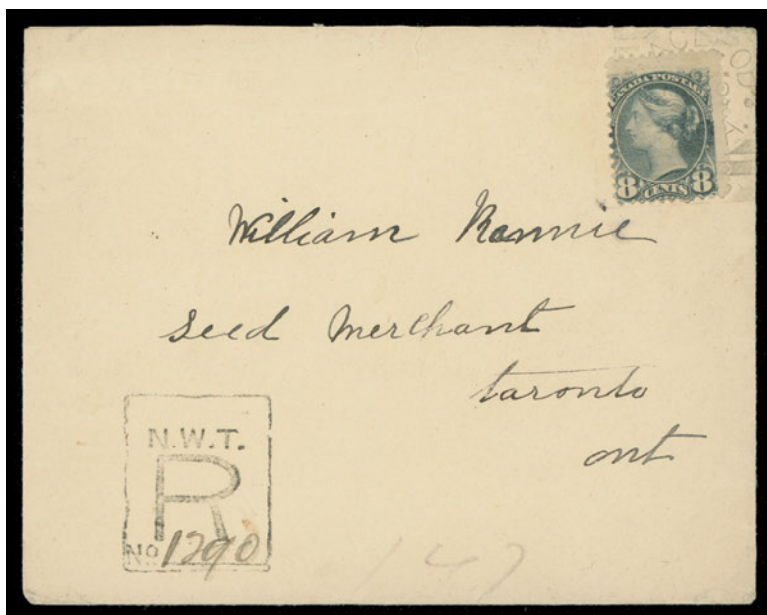 CANADA POSTAGE
8 CENTS 8
William Rennie
Seed Merchant
taronto
ont
N.W.T.
R
No 1290
147